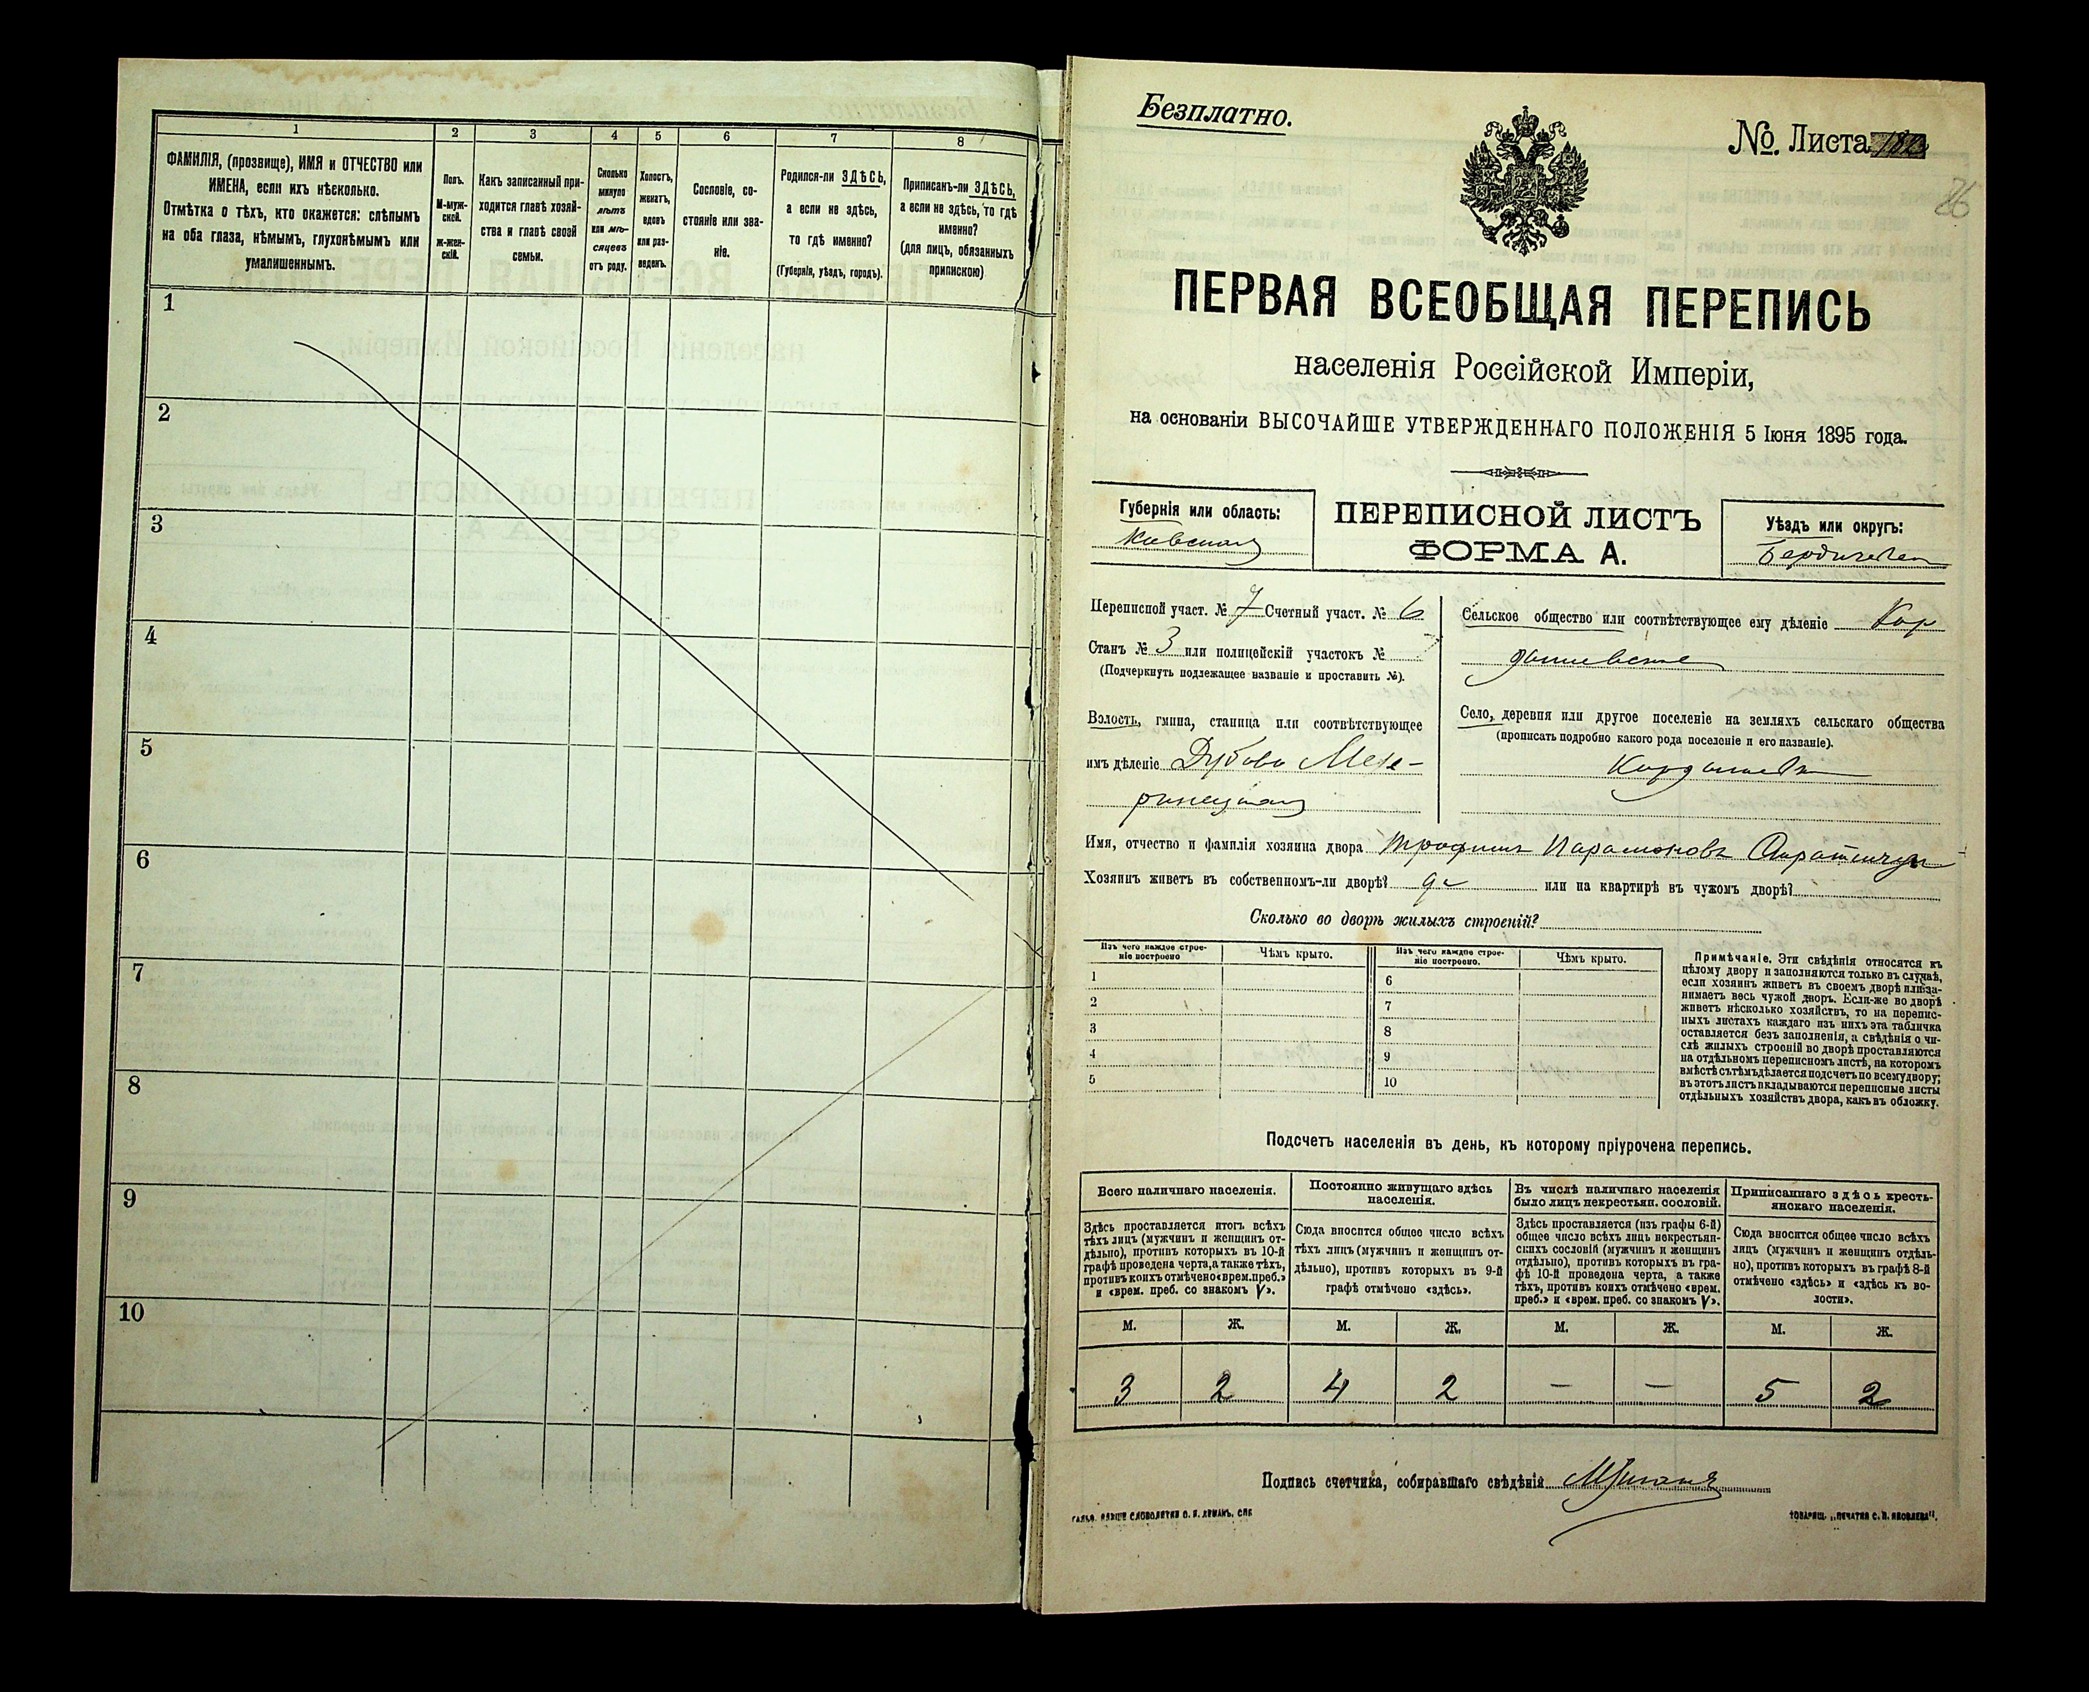 1
2
3
4
5
6
7
8
ФАМИЛІЯ, (прозвище), ИМЯ и ОТЧЕСТВО или
ИМЕНА, если ихъ нѣсколько.
Отмѣтка о тѣхъ, кто окажется: слѣпымъ
на оба глаза, нѣмымъ, глухонѣмымъ или
умалишеннымъ.
Полъ.
М-муж-
ской.
ж-жен-
скій.
Какъ записанный при-
ходится главѣ хозяй-
ства и главѣ своей
семьи.
Сколько
минуло
лѣтъ
или мѣ-
сяцевъ
отъ роду.
Холостъ,
женатъ,
вдовъ
или раз-
веденъ.
Сословіе, со-
стояніе или зва-
ніе.
Родился-ли ЗДѢСЬ,
а если не здѣсь,
то гдѣ именно?
(Губернія, уѣздъ, городъ).
Приписанъ-ли ЗДѢСЬ,
а если не здѣсь, то гдѣ
именно?
(для лицъ, обязанныхъ
припискою)
1
2
3
4
5
6
7
8
9
10
Безплатно.
№. Листа
26
ПЕРВАЯ ВСЕОБЩАЯ ПЕРЕПИСЬ
населенія Россійской Имперіи,
на основаніи ВЫСОЧАЙШЕ УТВЕРЖДЕННАГО ПОЛОЖЕНІЯ 5 Іюня 1895 года.
Губернія или область:
Кіевская
ПЕРЕПИСНОЙ ЛИСТЪ
ФОРМА А.
Уѣздъ или округъ:
Бердичевск
Переписной участ. № 7 Счетный участ. № 6
Станъ № 3 или полицейскій участокъ №
(Подчеркнуть подлежащее названіе и проставить №).
Волость, гмина, станица или соотвѣтствующее
имъ дѣленіе Дубово Меже-
ринецкая
Сельское общество или соотвѣтствующее ему дѣленіе Кор
дышевское
Село, деревня или другое поселеніе на земляхъ сельскаго общества
(прописать подробно какого рода поселеніе и его названіе).
Кордышевка
Имя, отчество и фамилія хозяина двора Трофимъ Парамоновъ
Хозяинъ живетъ въ собственномъ-ли дворѣ? да или на квартирѣ въ чужомъ дворѣ?
Сколько во дворѣ жилыхъ строеній?
Изъ чего каждое строе-
ніе построено
Чѣмъ крыто.
Изъ чего каждое строе-
ніе построено.
Чѣмъ крыто.
1
2
3
4
5
6
7
8
9
10
Примѣчаніе. Эти свѣдѣнія относятся къ
цѣлому двору и заполняются только въ случаѣ,
если хозяинъ живетъ въ своемъ дворѣ или за-
нимаетъ весь чужой дворъ. Если-же во дворѣ
живетъ нѣсколько хозяйствъ, то на перепис-
ныхъ листахъ каждаго изъ нихъ эта табличка
оставляется безъ заполненія, а свѣдѣнія о чи-
слѣ жилыхъ строеній во дворѣ проставляются
на отдѣльномъ переписномъ листѣ, на которомъ
вмѣстѣ съ тѣмъ дѣлается подсчетъ по всему двору;
въ этотъ листъ вкладываются переписные листы
отдѣльныхъ хозяйствъ двора, какъ въ обложку.
Подсчетъ населенія въ день, къ которому пріурочена перепись.
Всего наличнаго населенія.
Постоянно живущаго здѣсь
населенія.
Въ числѣ наличнаго населенія
было лицъ некрестьян. сословій.
Приписаннаго здѣсь кресть-
янскаго населенія.
Здѣсь проставляется итогъ всѣхъ
тѣхъ лицъ (мужчинъ и женщинъ от-
дѣльно), противъ которыхъ въ 10-й
графѣ проведена черта, а также тѣхъ,
противъ коихъ отмѣчено «врем. преб.»
и «врем. преб. со знакомъ V».
Сюда вносится общее число всѣхъ
тѣхъ лицъ (мужчинъ и женщинъ от-
дѣльно), противъ которыхъ въ 9-й
графѣ отмѣчено «здѣсь».
Здѣсь проставляется (изъ графы 6-й)
общее число всѣхъ лицъ некрестьян-
скихъ сословій (мужчинъ и женщинъ
отдѣльно), противъ которыхъ въ гра-
фѣ 10-й проведена черта, а также
тѣхъ, противъ коихъ отмѣчено «врем.
преб.» и «врем. преб. со знакомъ V».
Сюда вносится общее число всѣхъ
лицъ (мужчинъ и женщинъ отдѣль-
но), противъ которыхъ въ графѣ 8-й
отмѣчено «здѣсь» и «здѣсь къ во-
лости».
М. Ж. М. Ж. М. Ж. М. Ж.
3 2 4 2 — — 5 2
Подпись счетчика, собиравшаго свѣдѣнія
СЛОВОЛИТНИ О. И. ЛЕМАНЪ, СПБ
ТОВАРИЩ. „ПЕЧАТНЯ С. П. ЯКОВЛЕВА".